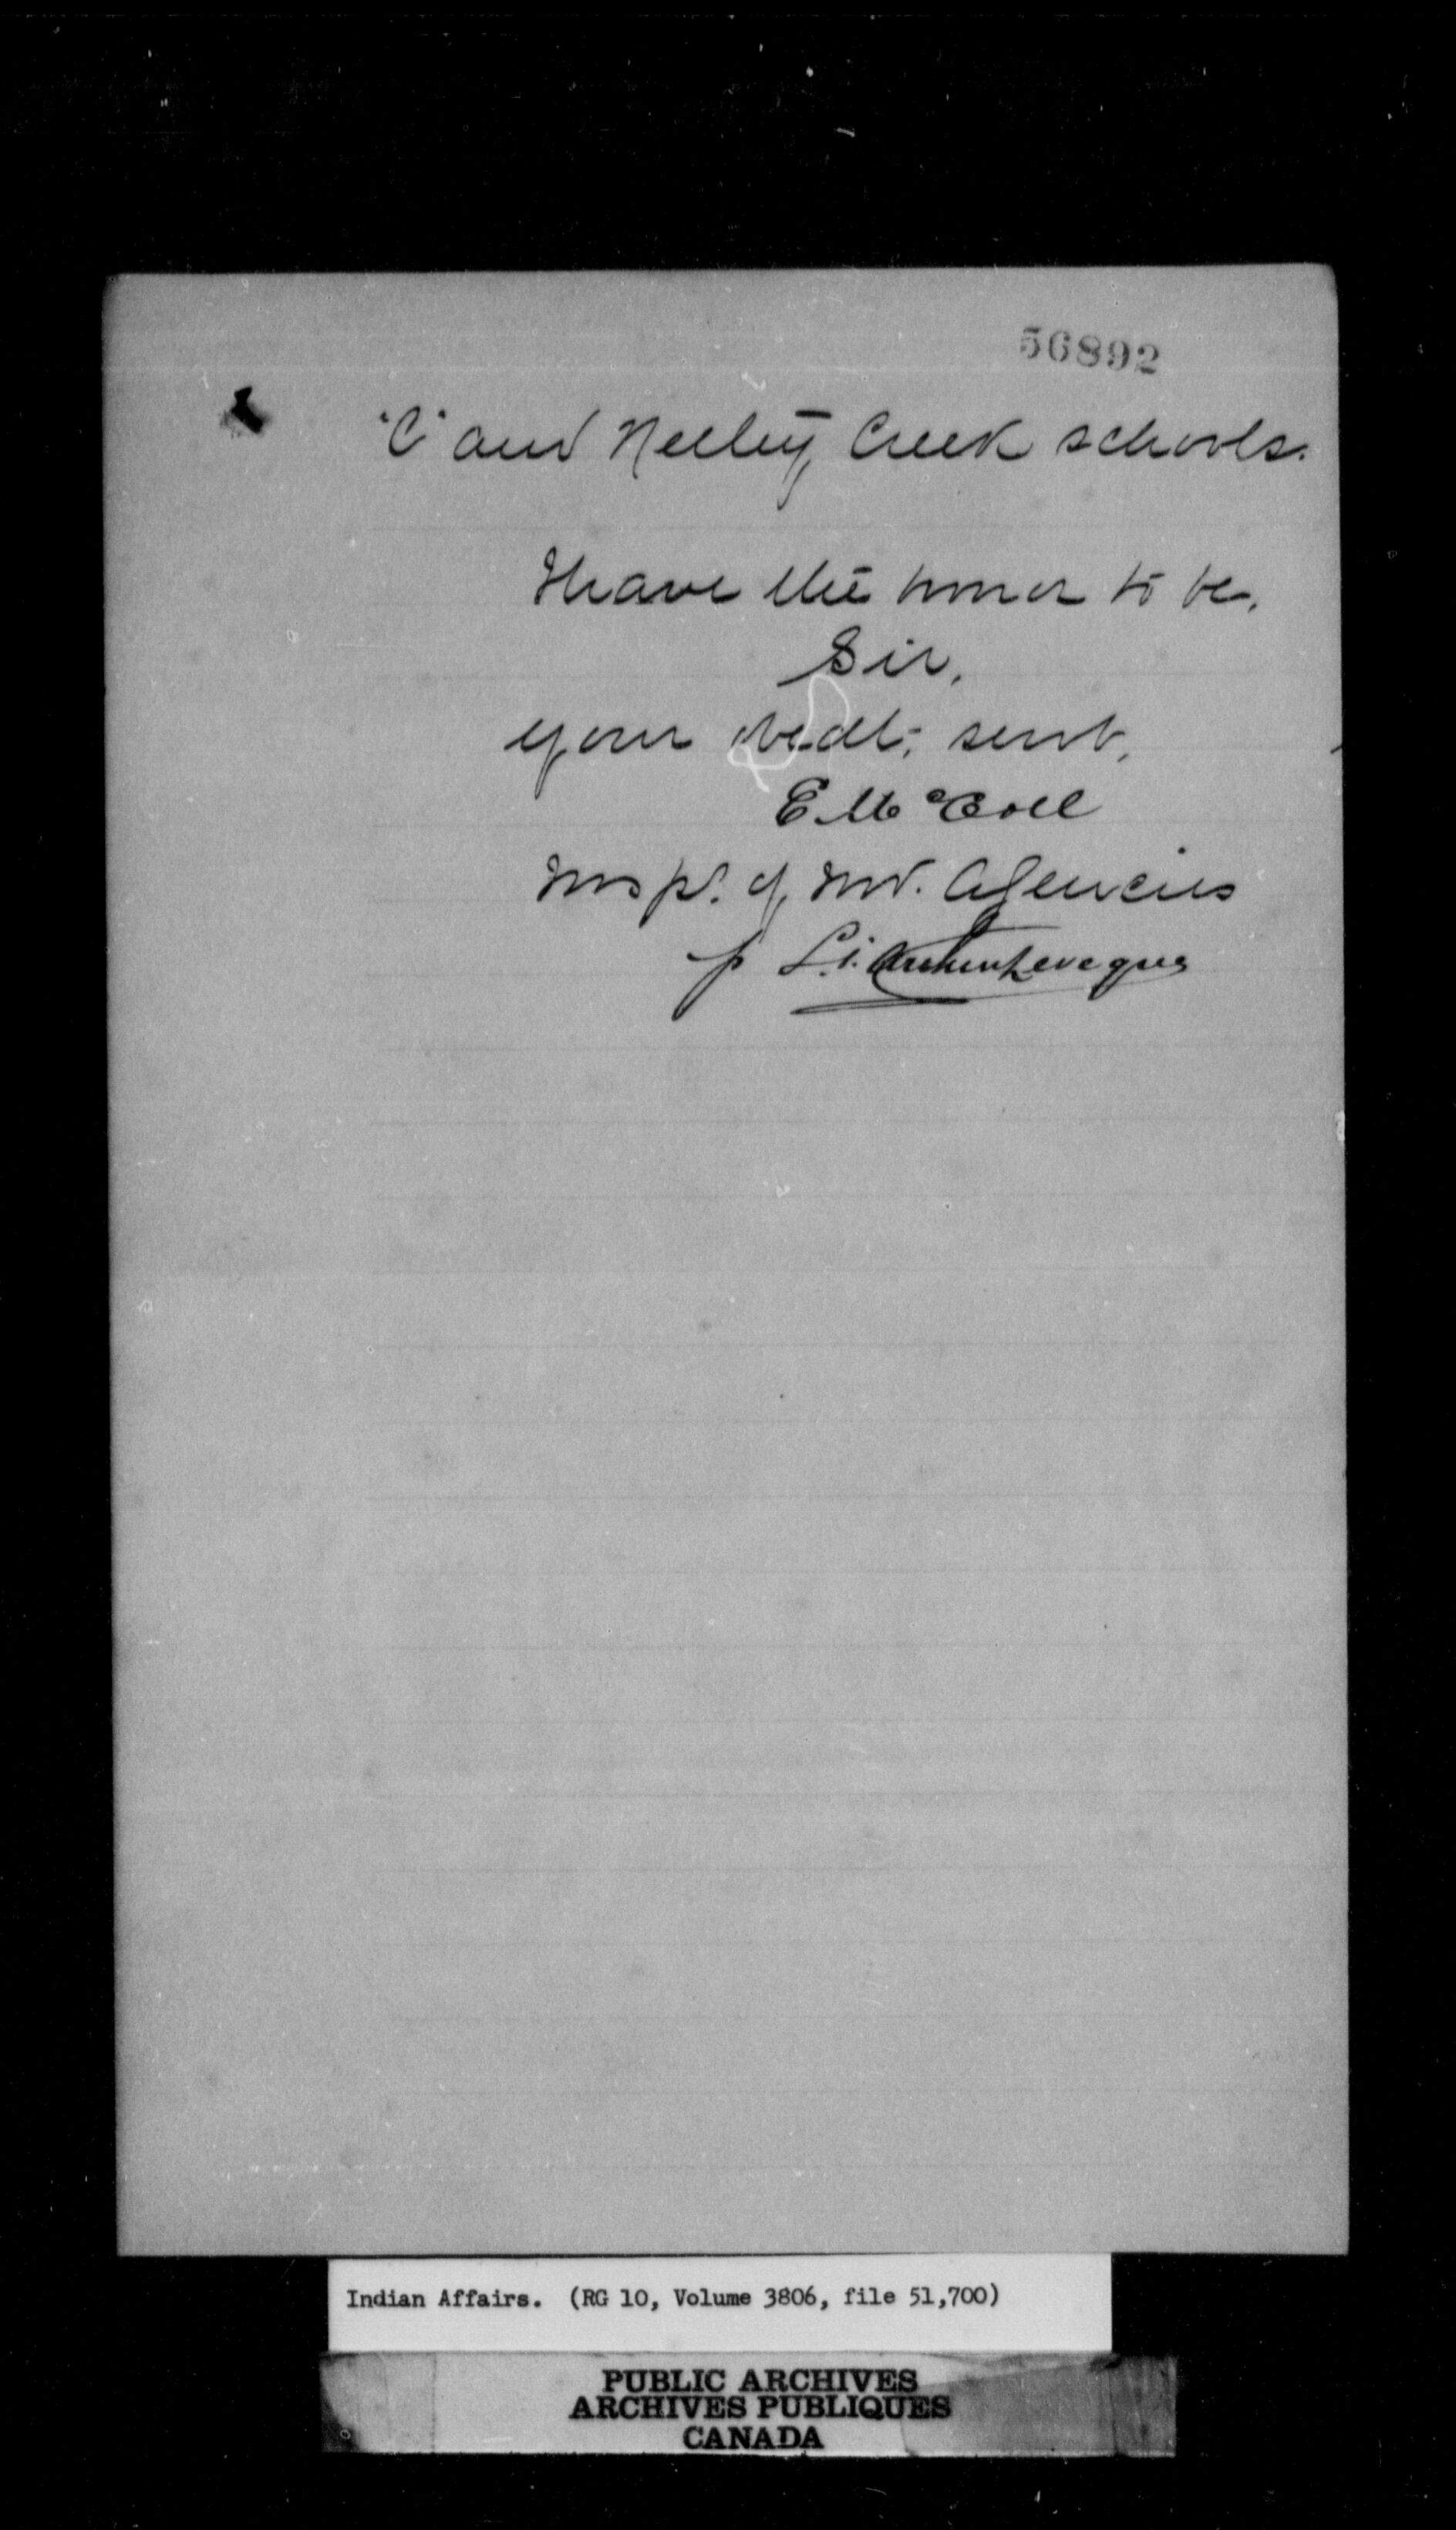 56892
"C" and Netley Creek schools.
I have the honor to be,
Sir,
your obedt. servt,
E McColl
Insp. of Ind. Agencies
p L. J. Levêque
Indian Affairs. (RG 10, Volume 3806, file 51,700)
PUBLIC ARCHIVES
ARCHIVES PUBLIQUES
CANADA